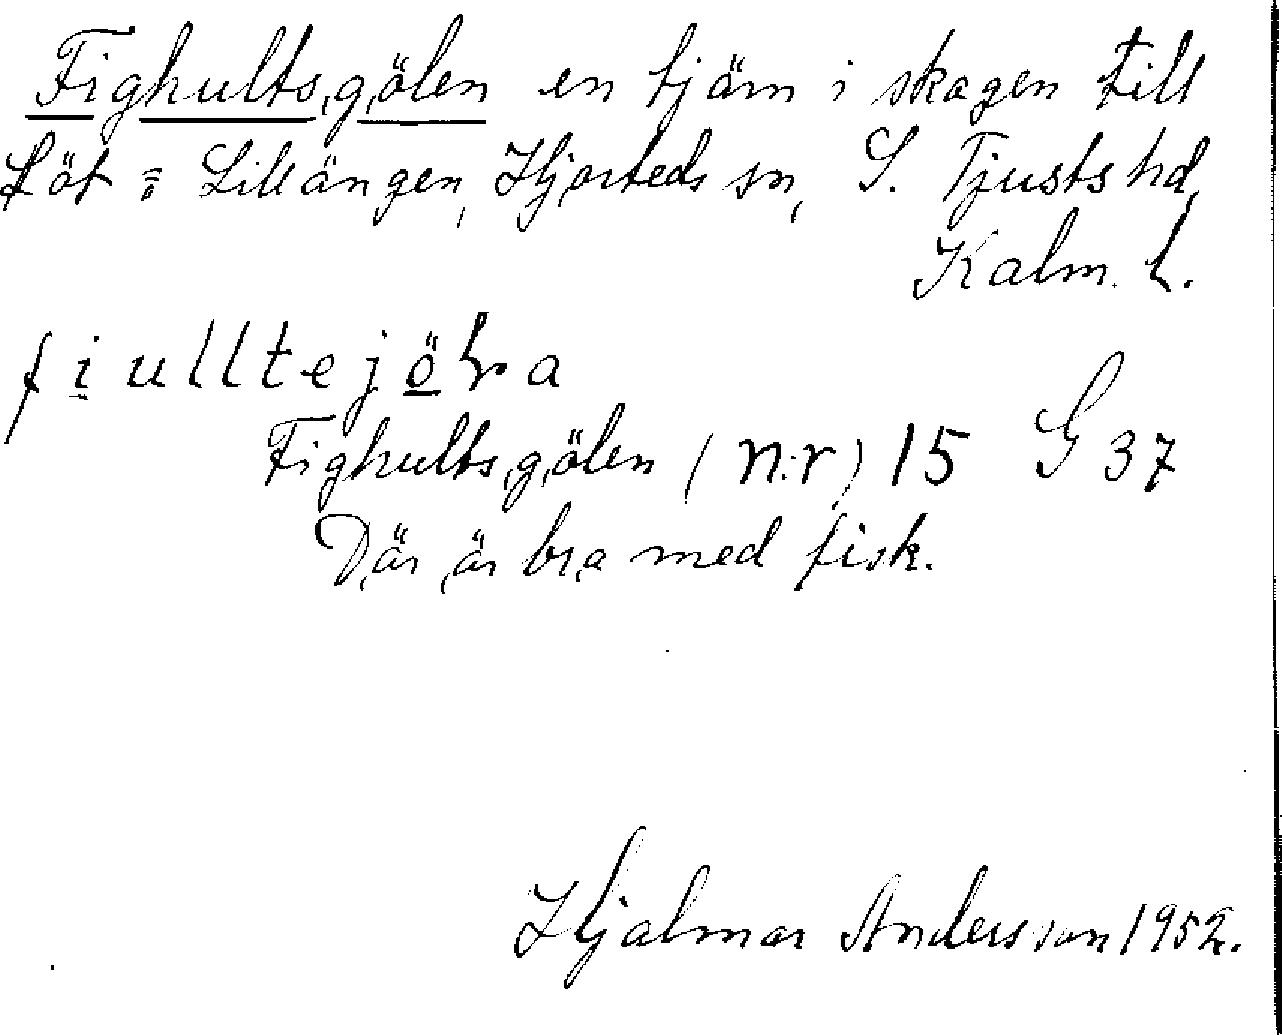 Fighultsgölen en tjärn i skogen till
Löt = Lillängen, Hjorteds sn, S. Tjusts hd,
Kalm. l.
fiulltejöḷva
Fighultsgölen (n:r) 15 G 37
Där är bra med fisk.
Hjalmar Andersson 1952.